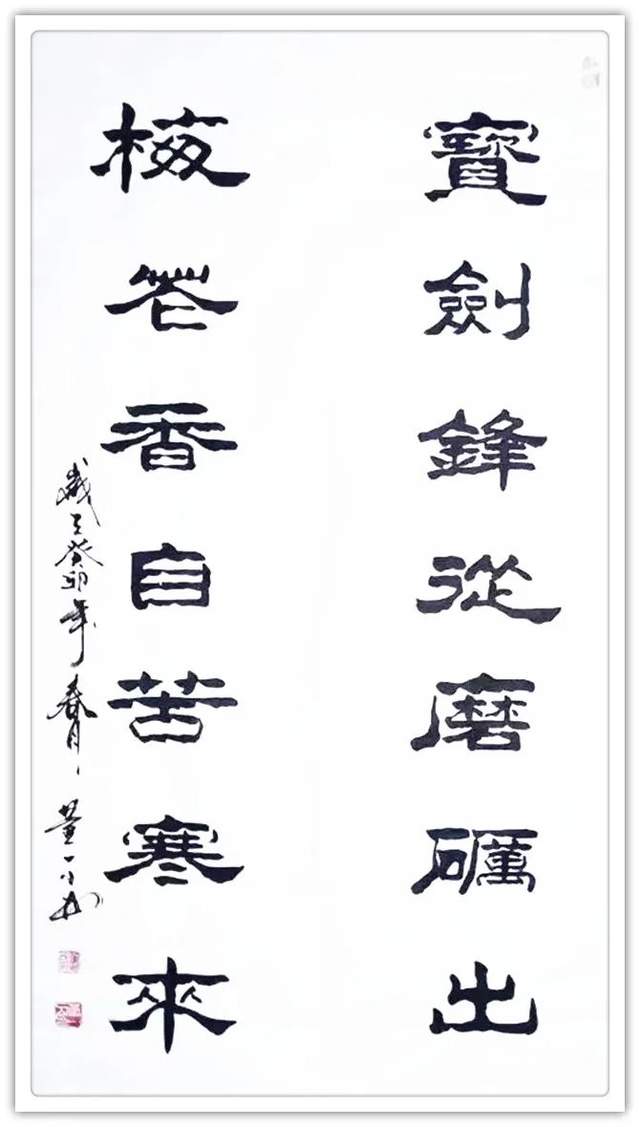 寶劍鋒從磨礪出
梅花香自苦寒來
歲在癸卯年春月